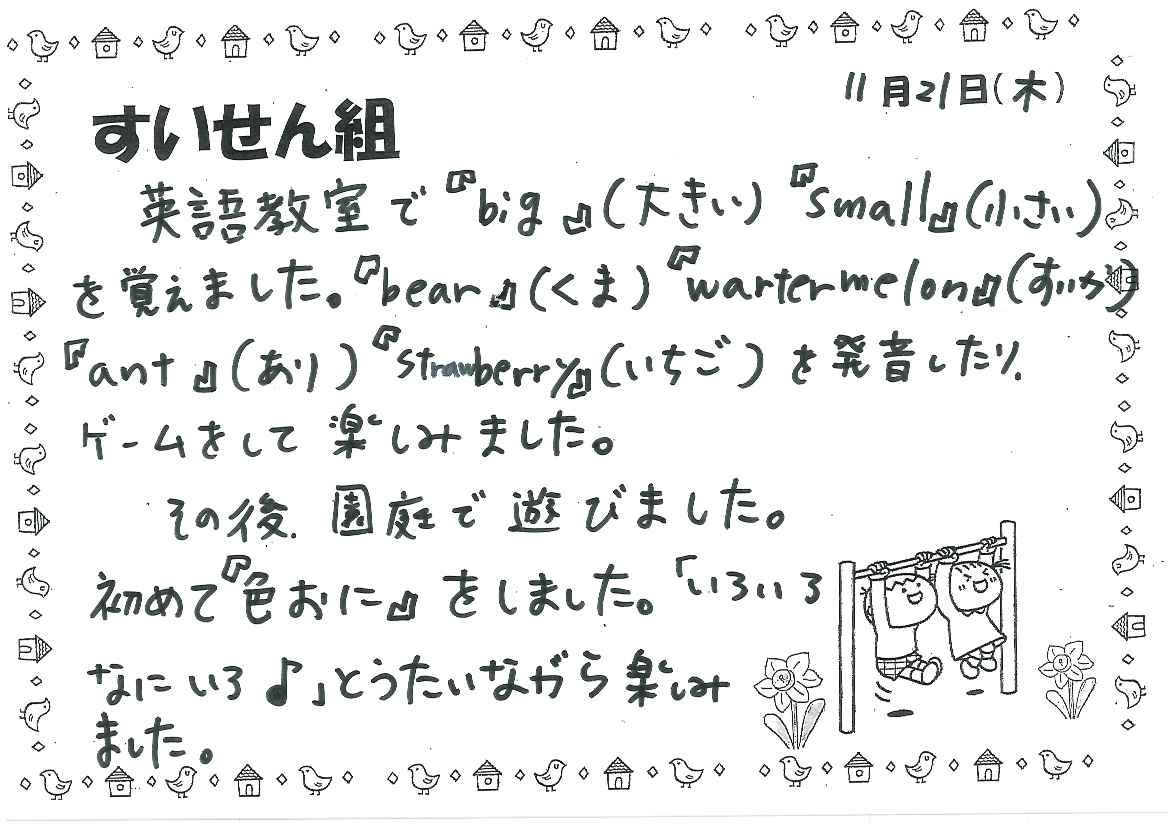 11月21日(木)
すいせん組
英語教室で『big』(大きい)『small』(小さい)
を覚えました。『bear』(くま)『wartermelon』(すいか)
『ant』(あり)『strawberry』(いちご)を発音したり、
ゲームをして楽しみました。
その後、園庭で遊びました。
初めて『色おに』をしました。「いろいろ
なにいろ♪」とうたいながら楽しみ
ました。